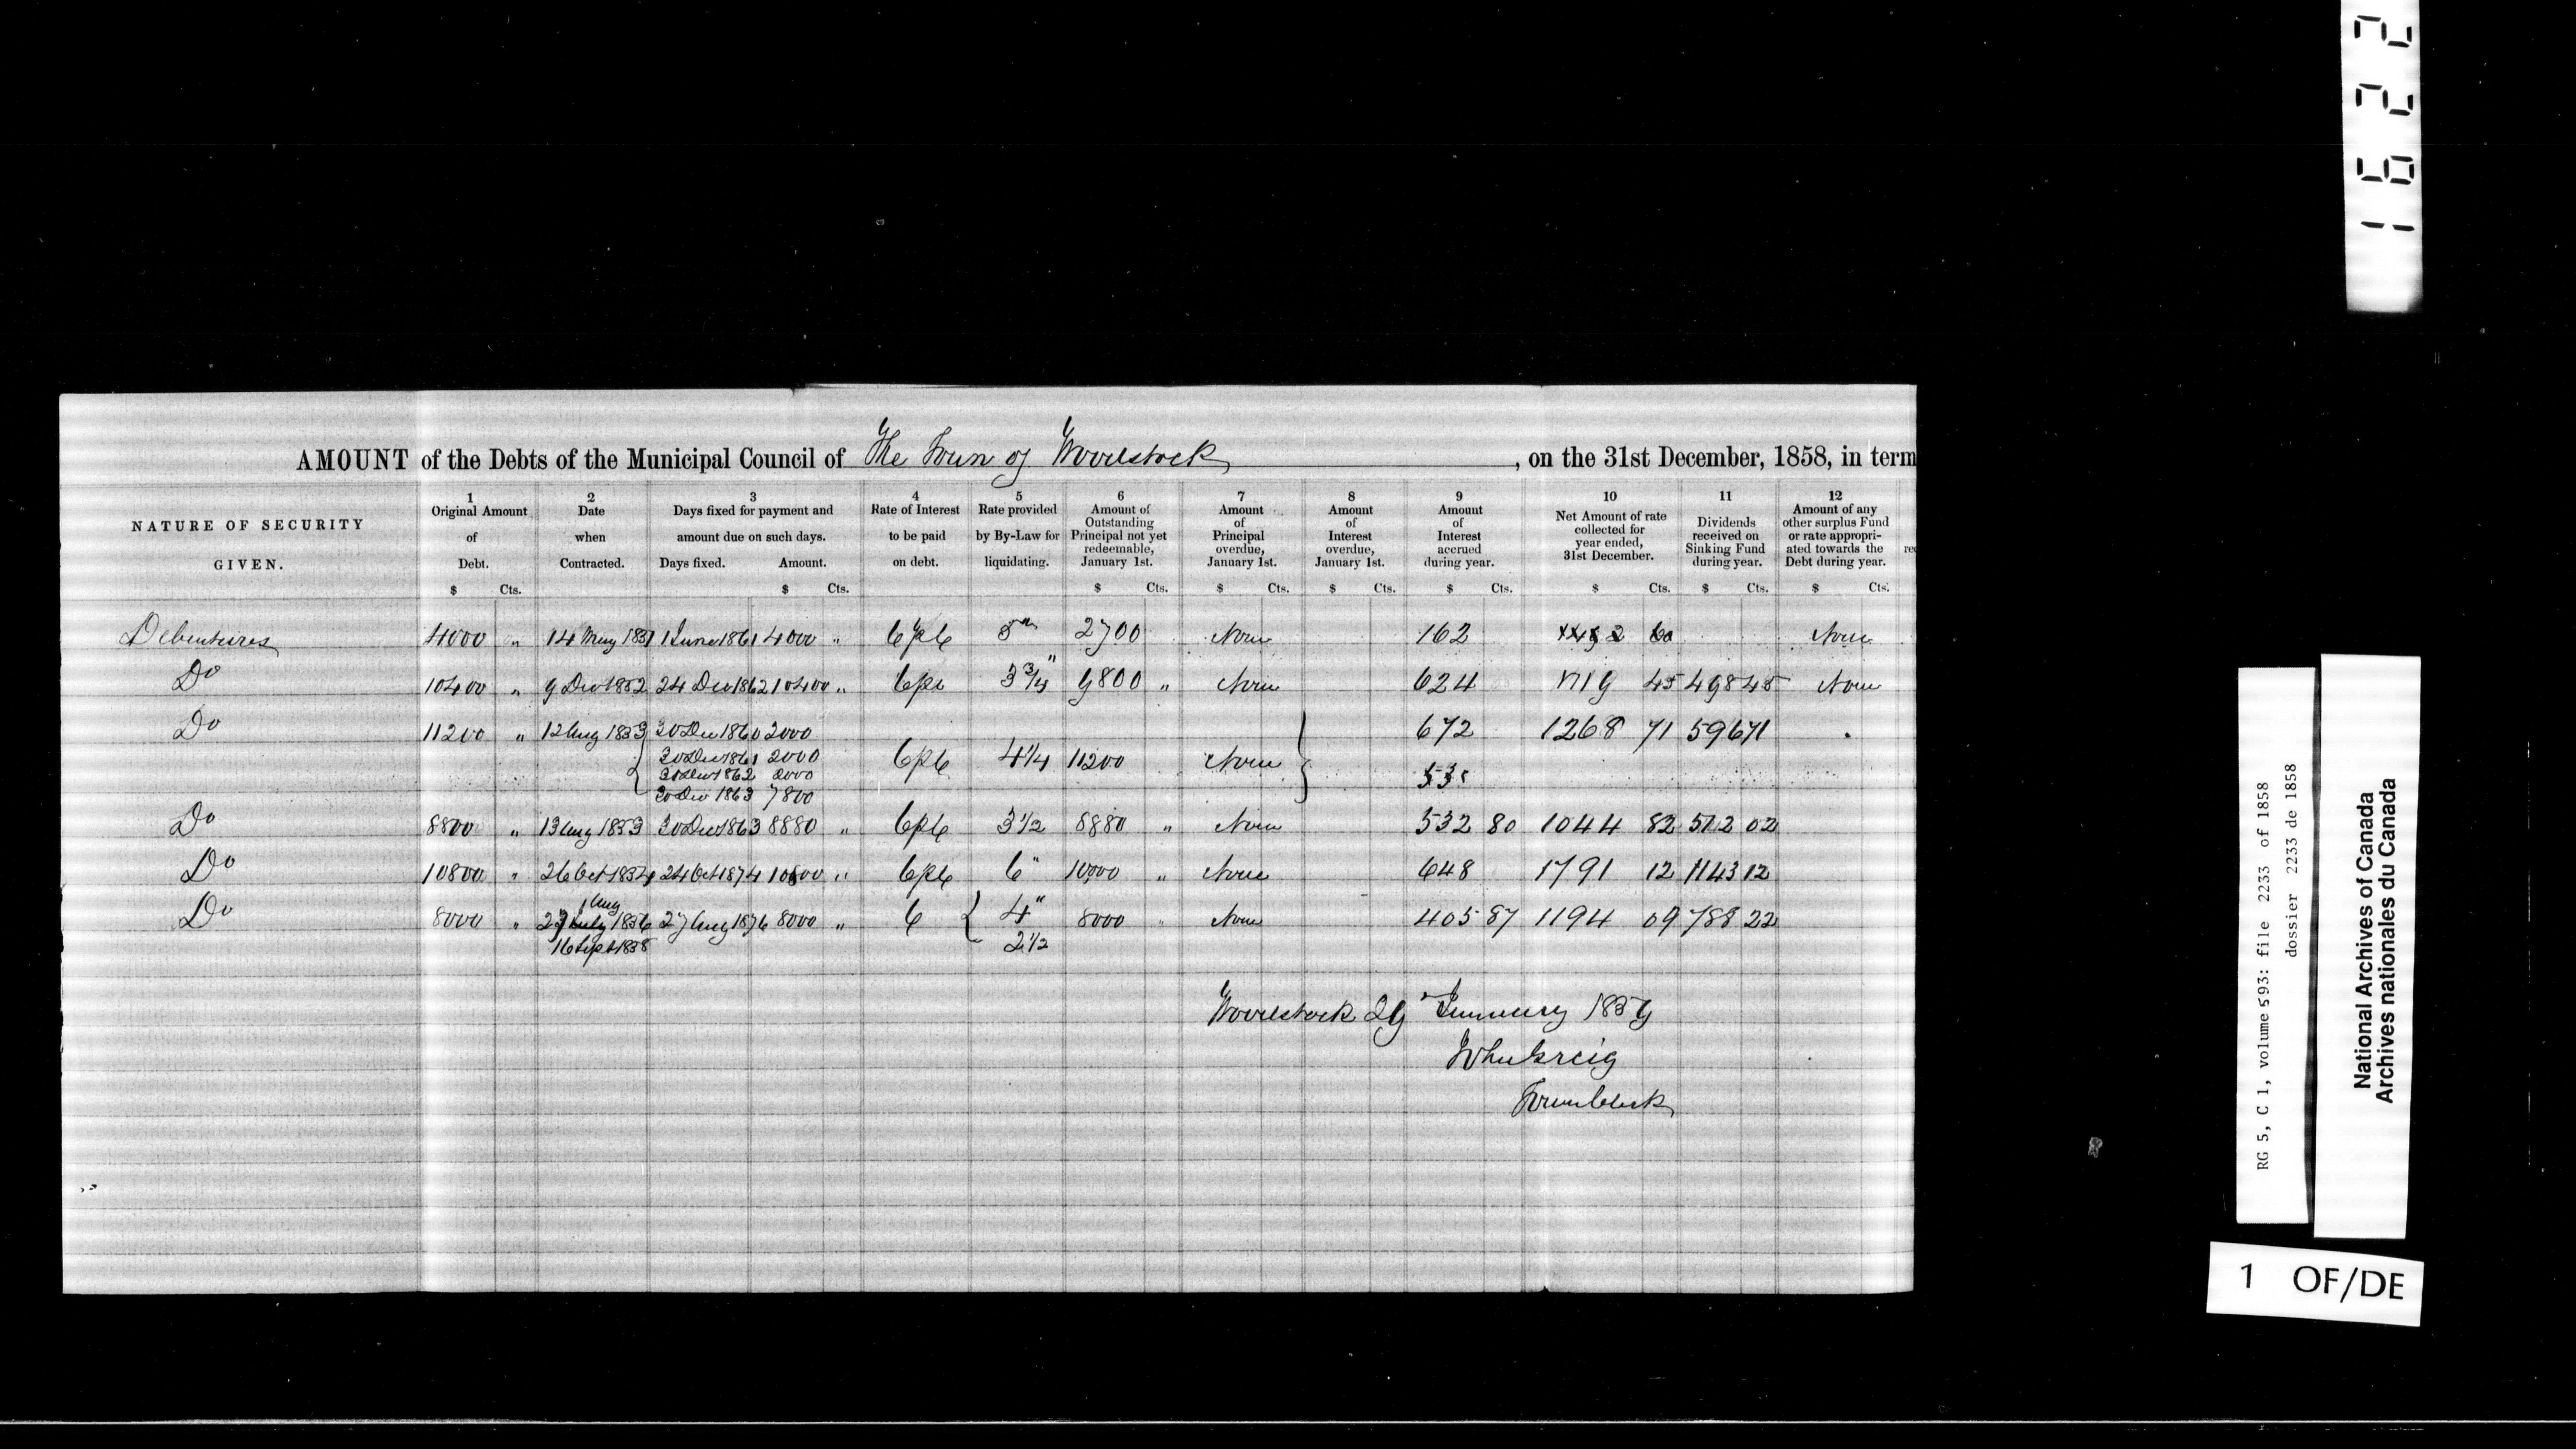 1622
AMOUNT of the Debts of the Municipal Council of The Town of Woodstock, on the 31st December, 1858, in term
NATURE OF SECURITY GIVEN.
1 Original Amount of Debt. $ Cts.
2 Date when Contracted.
3 Days fixed for payment and amount due on such days. Days fixed. Amount. $ Cts.
4 Rate of Interest to be paid on debt.
5 Rate provided by By-Law for liquidating.
6 Amount of Outstanding Principal not yet redeemable, January 1st. $ Cts.
7 Amount of Principal overdue, January 1st. $ Cts.
8 Amount of Interest overdue, January 1st. $ Cts.
9 Amount of Interest accrued during year. $ Cts.
10 Net Amount of rate collected for year ended, 31st December. $ Cts.
11 Dividends received on Sinking Fund during year. $ Cts.
12 Amount of any other surplus Fund or rate appropriated towards the Debt during year. $ Cts.
Debentures 4000 " 14 May 1851 1 June 1861 4000 " 6 p c 2700 None 162 None
Do 10400 " 9 Dec 1852 24 Dec 1862 10400 " 6 p c 3 3/4 " 9800 " None 624 1119 45 498 45 None
Do 11200 " 12 Aug 1853 30 Dec 1860 2000 672 1268 71 596 71
30 Dec 1861 2000 6 p c 4 1/4 11200 None
30 Dec 1862 2000
30 Dec 1863 7800
Do 8800 " 13 Aug 1853 30 Dec 1863 8880 " 6 p c 3 1/2 8880 " None 532 80 1044 82 512 02
Do 10800 " 26 Oct 1854 24 Oct 1874 10800 " 6 p c 6 " 10000 " None 648 1791 12 1143 12
1 Aug
Do 8000 " 27 July 1856 27 Aug 1876 8000 " 6 4 " 8000 " None 405 87 1194 09 788 22
16 Sept 1858 2 1/2
Woodstock 29 January 1859
John Greig
Town Clerk
RG 5, C 1, volume 593: file 2233 of 1858
dossier 2233 de 1858
National Archives of Canada
Archives nationales du Canada
1 OF/DE